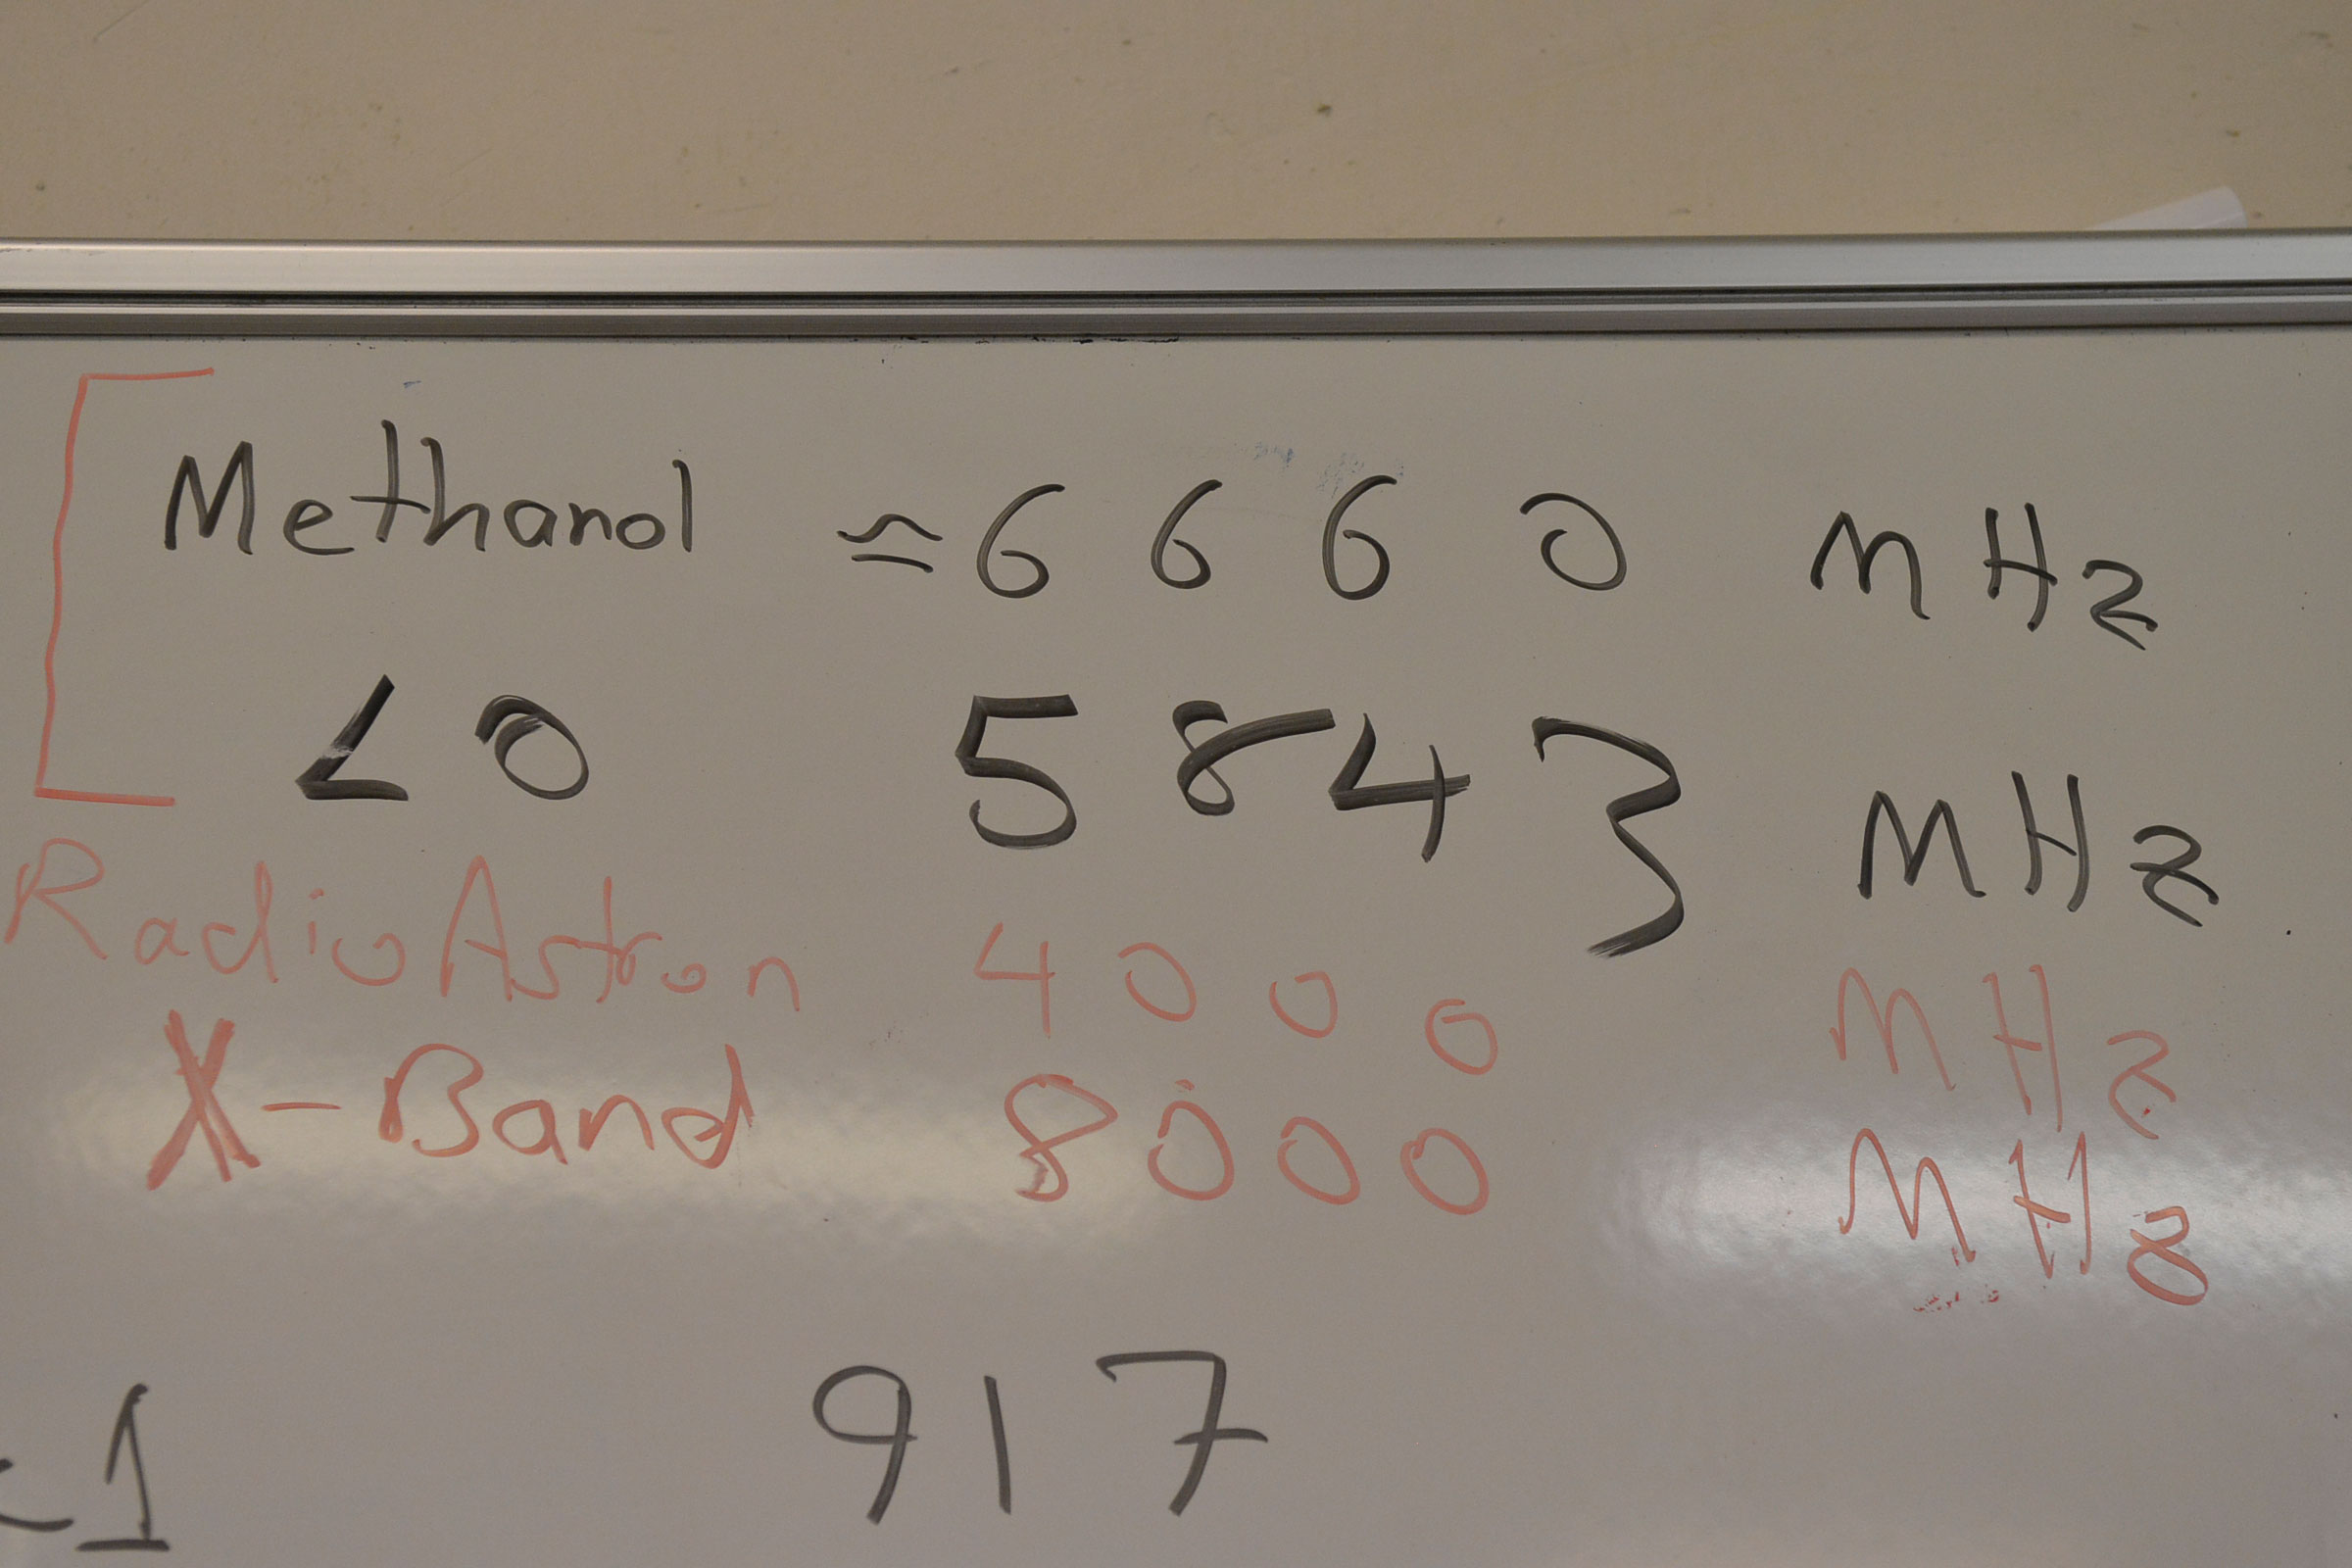 Methanol ≃ 6 6 6 0 MHz
LO 5843 MHz
RadioAstron 4000 MHz
X-Band 8000 MHz
1 917